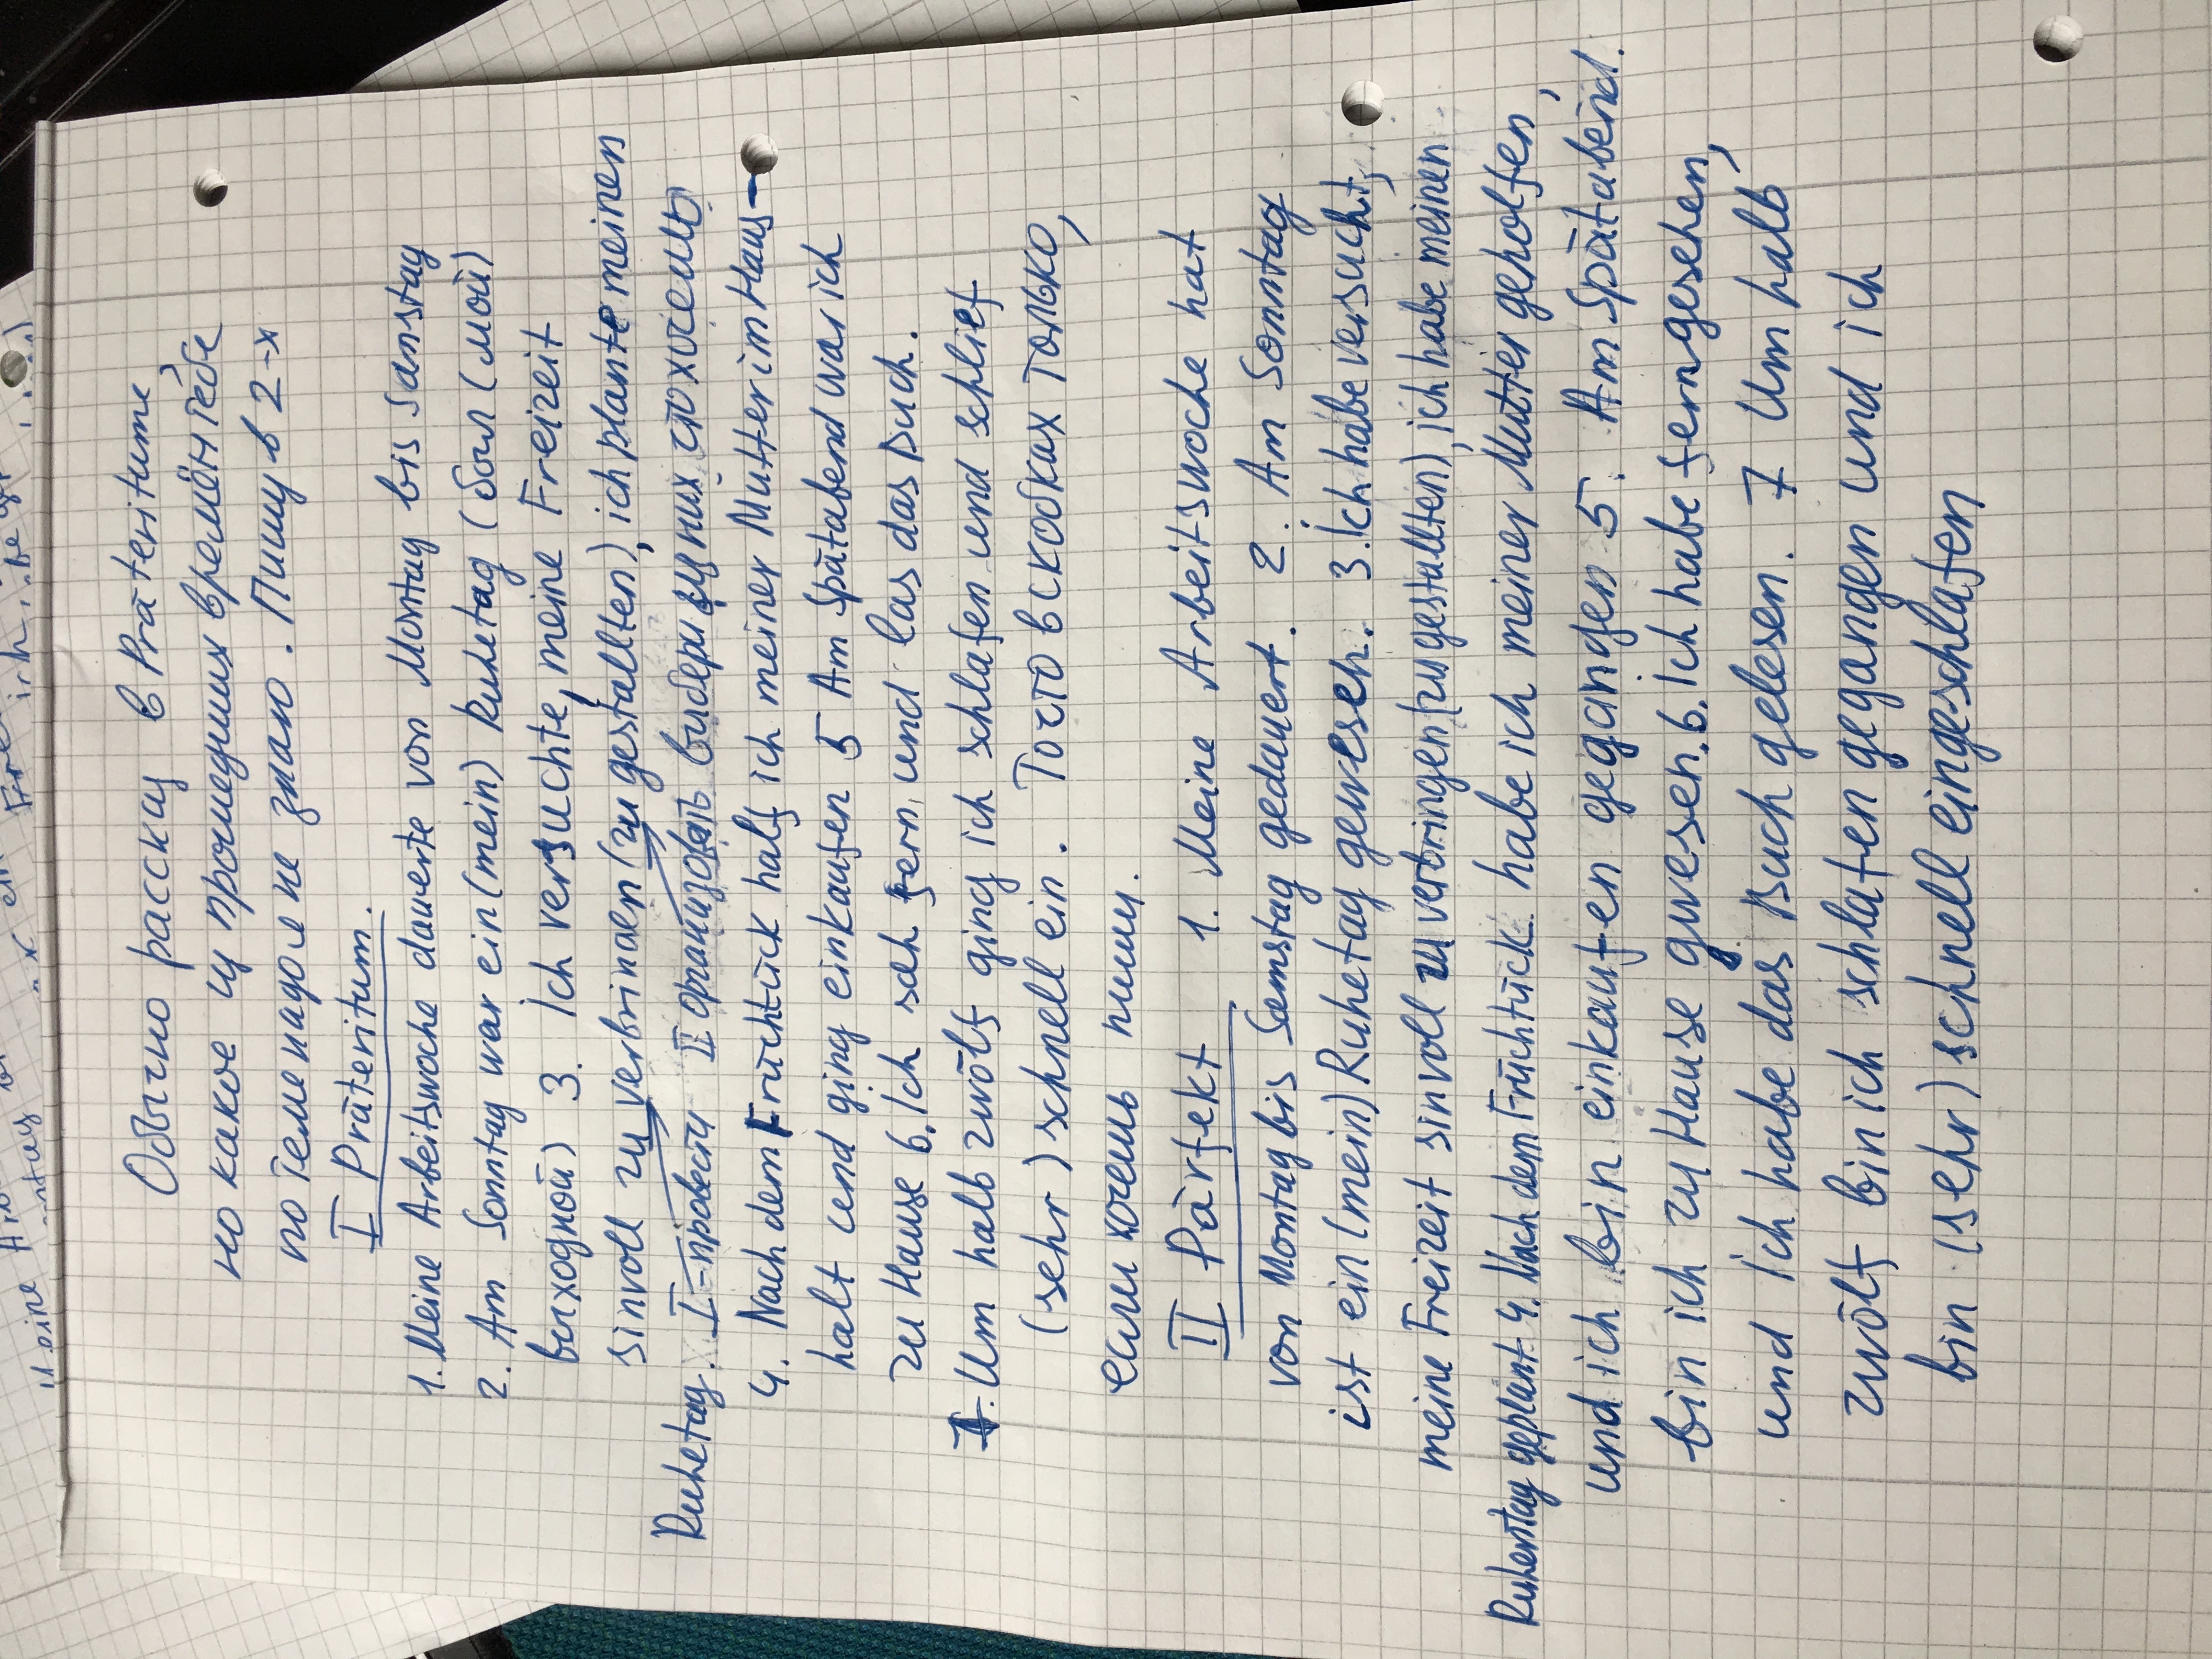 Обычно рассказ в Präteritume,
но какое из прошедших времён тебе
по теме надо я не знаю. Пишу в 2-х
I Präteritum.
1. Meine Arbeitswoche dauerte von Montag bis Samstag
2. Am Sonntag war ein (mein) Ruhetag (был (мой)
выходной) 3. Ich versuchte, meine Freizeit
sinvoll zu verbringen (zu gestallten), ich plante meinen
Ruhetag. I-провести II организовать выбери из них что хочешь
4. Nach dem Früchtück half ich meiner Mutter im Haus-
halt und ging einkaufen 5 Am Spätabend war ich
zu Hause 6. Ich sah fern und las das Buch.
7. Um halb zwölf ging ich schlafen und schlief
(sehr) schnell ein. То что в скобках только,
если хочешь пиши.
II Pärfekt 1. Meine Arbeitswoche hat
von Montag bis Samstag gedauert. 2. Am Sonntag
ist ein (mein) Ruhetag gewesen. 3. Ich habe versucht,
meine Freizeit sinvoll zu verbringen (zu gestallten), ich habe meinen
Ruhentag geplant 4. Nach dem Früchtück habe ich meiner Mutter geholfen,
und ich bin einkaufen gegangen 5. Am Spätabend.
bin ich zu Hause gwesen. 6. Ich habe ferngesehen,
und ich habe das Buch gelesen. 7 Um halb
zwölf bin ich schlafen gegangen und ich
bin (sehr) schnell eingeschlafen